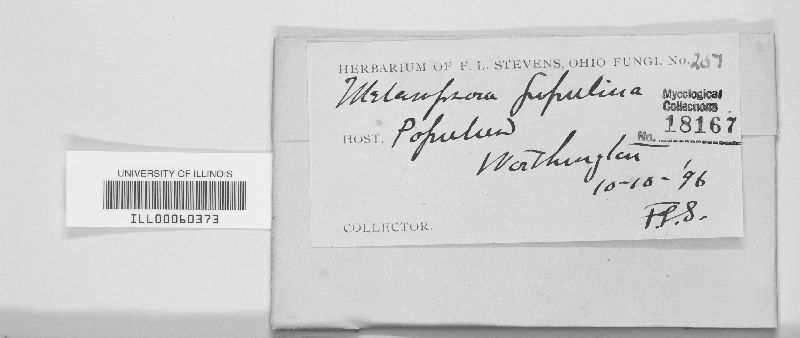 HERBARIUM OF F. L. STEVENS, OHIO FUNGI, No. 257
Melampsora populina
Mycological
Collections
No. 18167
HOST, Populus
Worthington
10-10-'96
F.L.S.
COLLECTOR.
UNIVERSITY OF ILLINOIS
ILL00060373